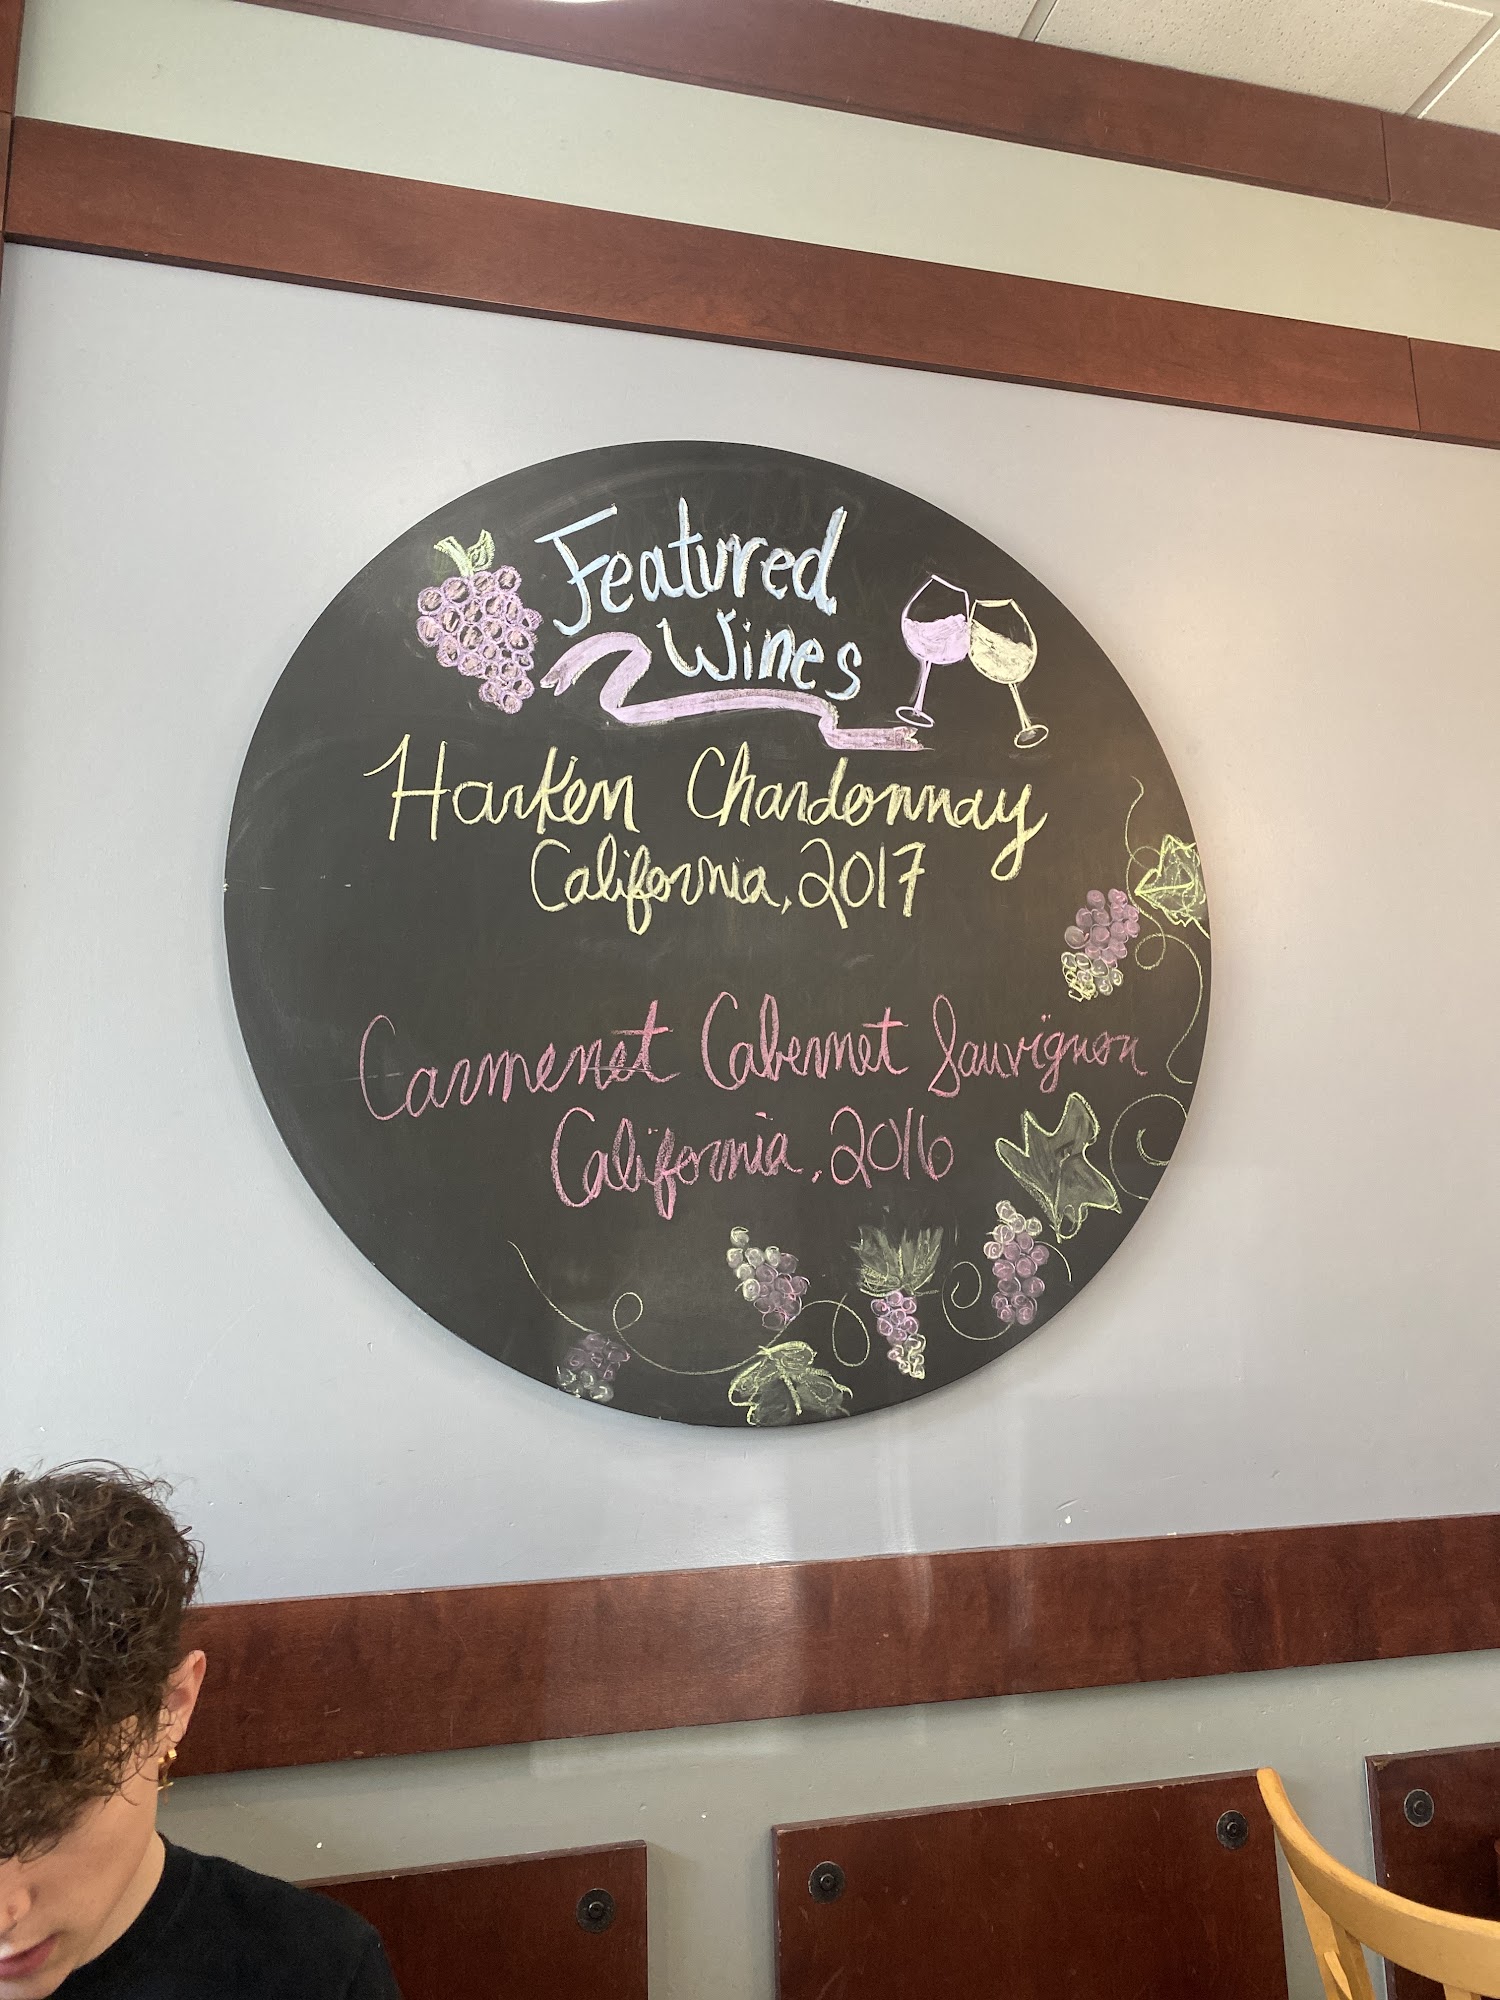 Featured
Wines
Harken Chardonnay
California, 2017
Carmenet Cabernet Sauvignon
California, 2016